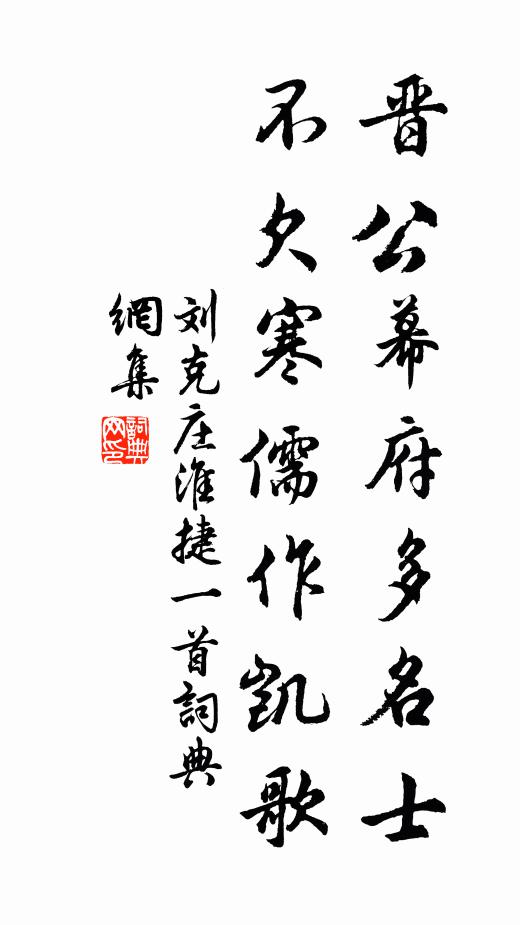 晋公幕府多名士
不欠寒儒作凯歌
刘克庄淮捷一首詞典
網集
詞典
网印